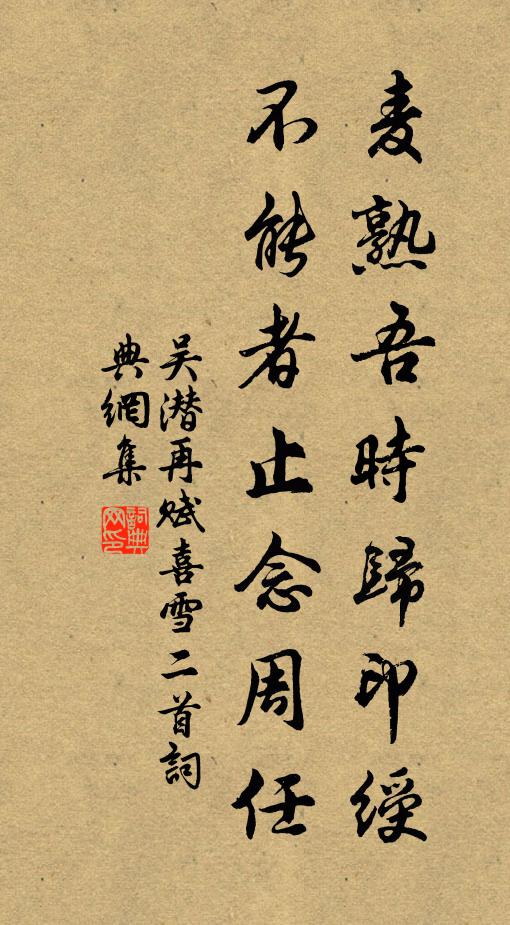 麦熟吾時歸印綬
不能者止念周任
吴潜再赋喜雪二首詞
典網集
詞典
网印